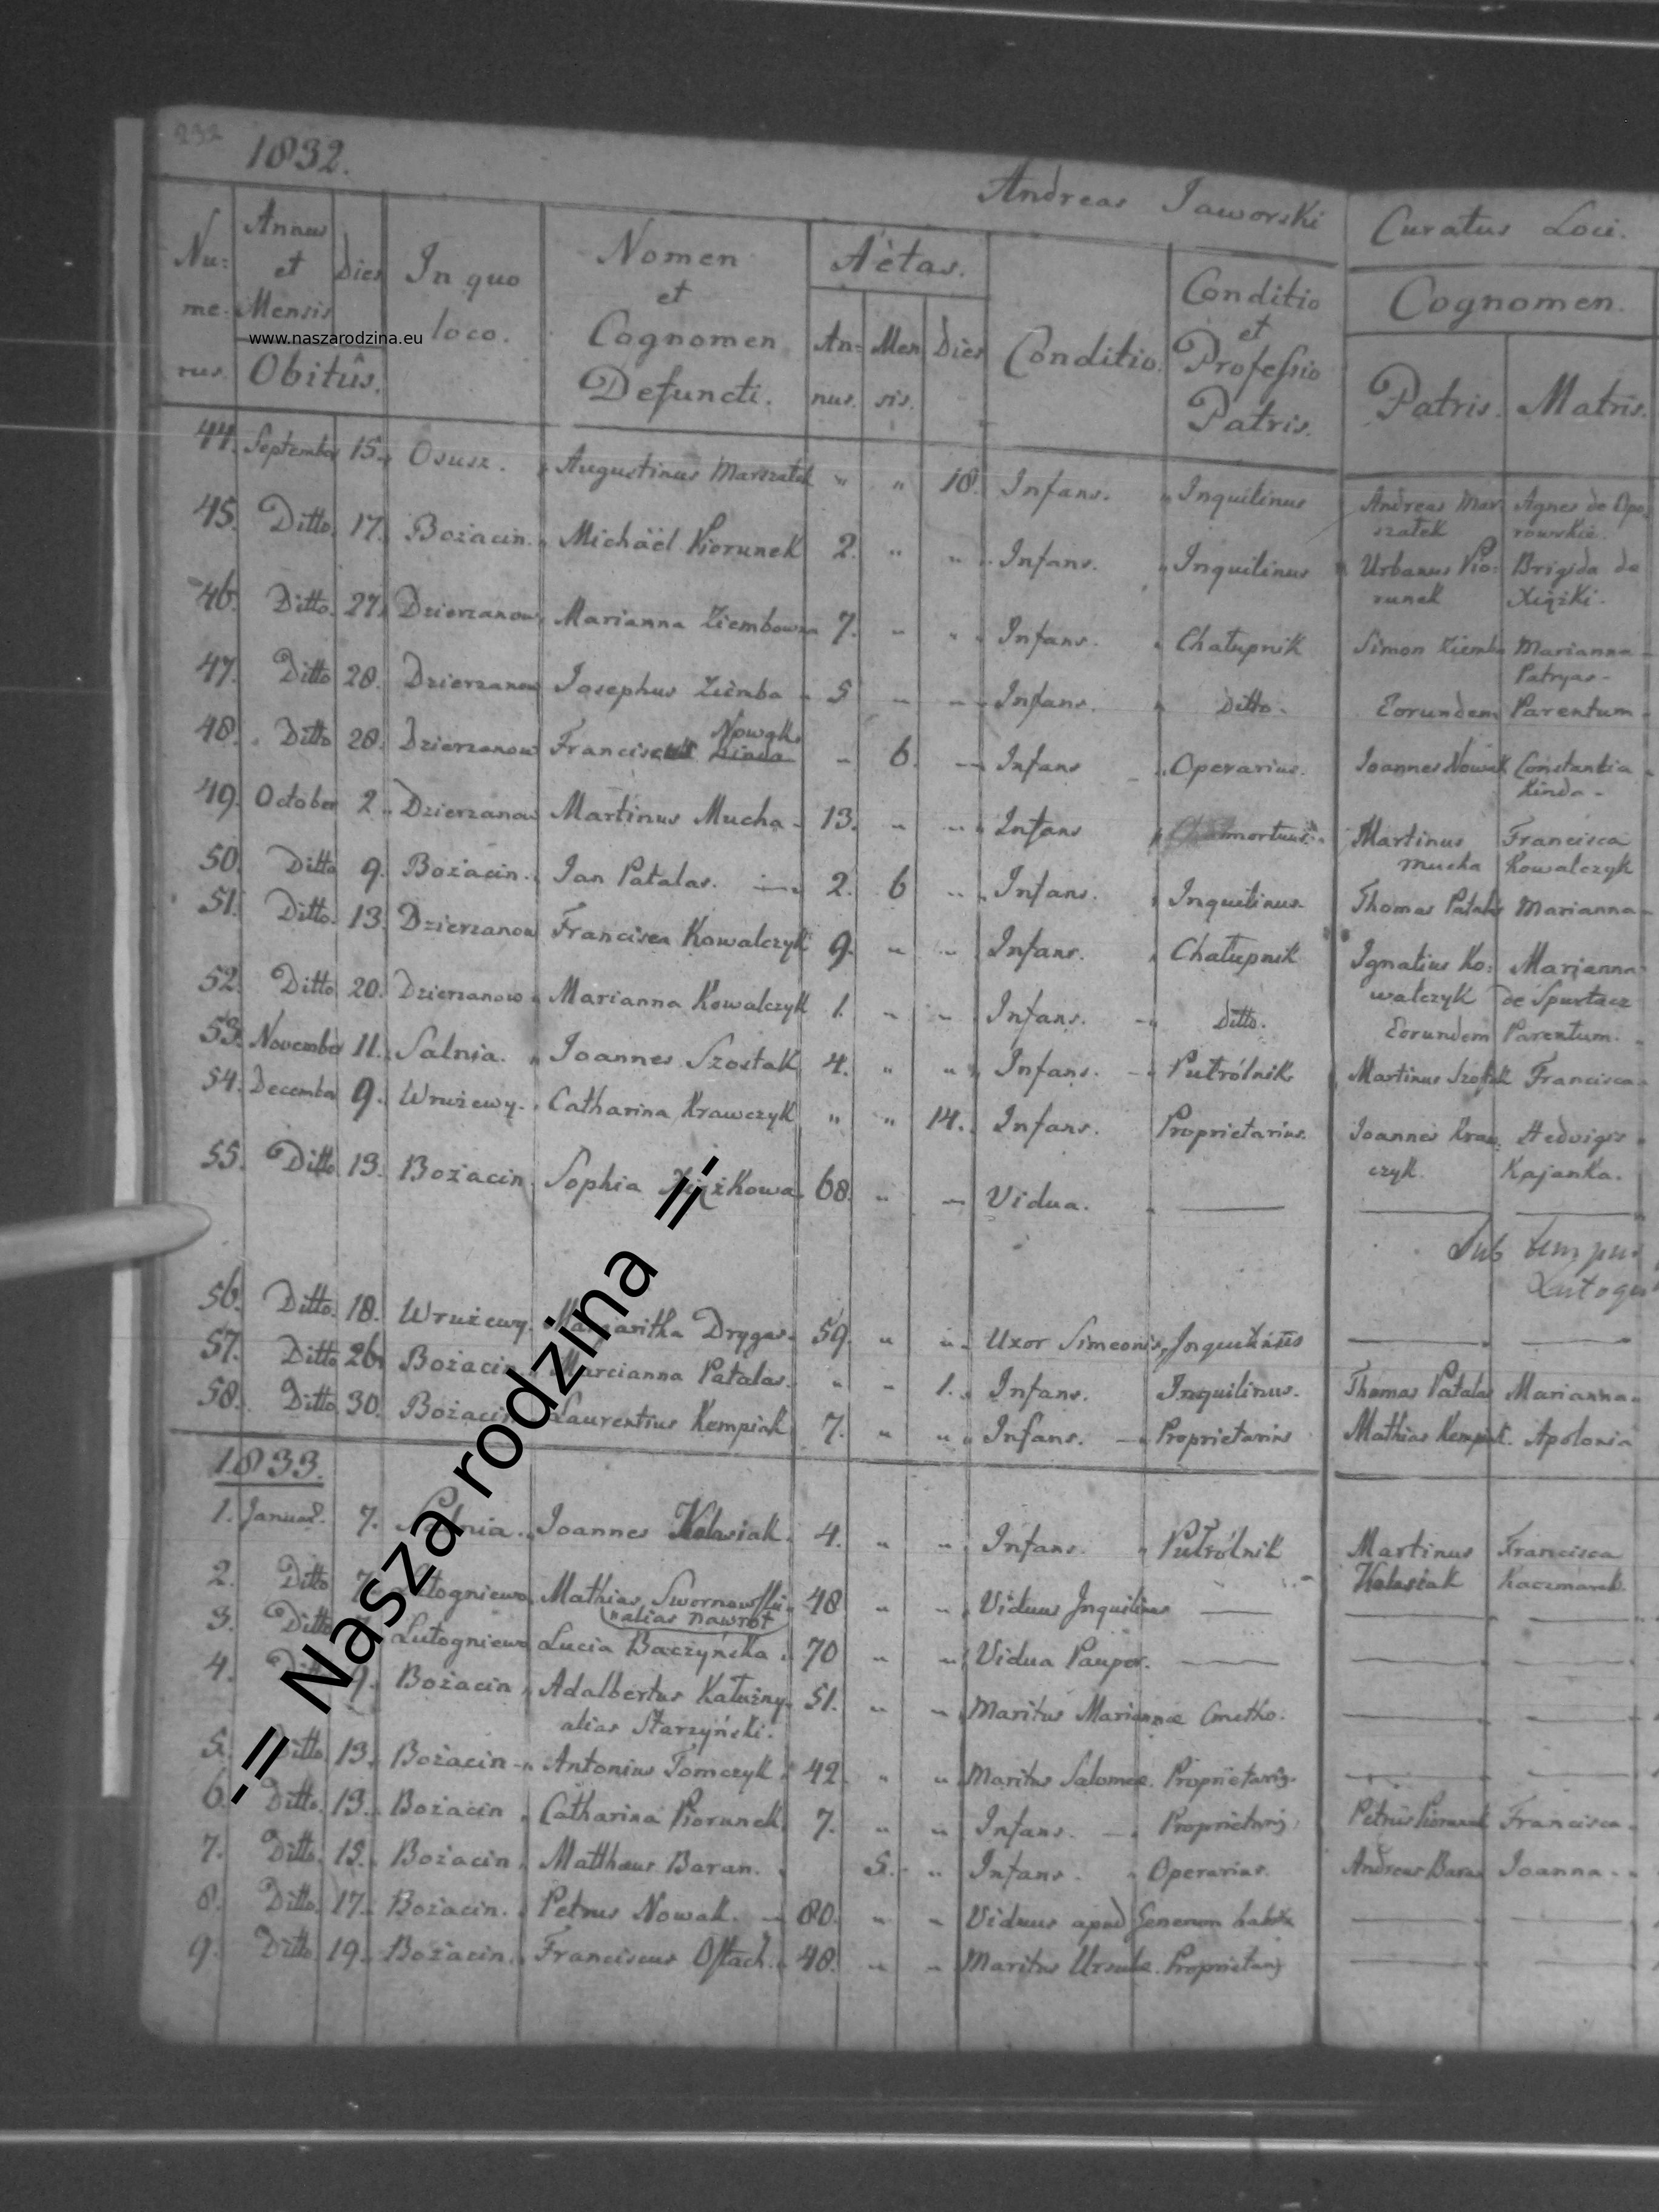 232
1832.
Andreas Jaworski Curatus Loci.
Nu: me- rus. Annus et Mensis Dies Obitûs. In quo loco. Nomen et Cognomen Defuncti. Aëtas. An- nus. Men sis. Dies Conditio. Conditio et Professio Patris. Cognomen. Patris. Matris.
www.naszarodzina.eu
44. September 15. Osusz. Augustinus Marszałek " " 18. Infans. Inquilinus Andreas Mar Agnes de Opo
szałek rowskie.
45. Ditto. 17. Bożacin. Michäel Piorunek 2. " " Infans. Inquilinus Urbanus Pio: Brigida de
runek Xiązki.
46. Ditto. 27. Dzierzanow Marianna Ziembowna 7. " " Infans. Chałupnik Simon Ziemba Marianna
Patryas-
47. Ditto 28. Dzierzanow Josephus Ziemba 5 Infans. Ditto. Eorundem Parentum
48. Ditto 28. Dzierzanow Franciscus Nowak 6. Infans Operarius. Joannes Nowak Constantia
Kinda-
49. October 2 Dzierzanow Martinus Mucha 13. Infans mortuus. Martinus Francisca
Mucha Kowalczyk
50. Ditto 9. Bożacin. Jan Patalas. 2. 6 Infans. Inquilinus Thomas Patalas Marianna
51. Ditto. 13. Dzierzanow Francisca Kowalczyk 9. Infans. Chałupnik Ignatius Ko: Marianna
walczyk de Spurtacz
52. Ditto 20. Dzierzanow Marianna Kowalczyk 1. Infans. Ditto. Eorundem Parentum.
53. November 11. Salnia. Joannes Szostak 4. " " Infans. Putrólnik Martinus Szostak Francisca
54. December 9. Wrużewy. Catharina Krawczyk " " 14. Infans. Proprietarius. Joannes Kraw Hedvigis
czyk. Kajanka.
55. Ditto 13. Bożacin. Sophia 68. " Vidua.
Sub tempus
56. Ditto. 18. Wrużewy. Margaritha Drygas 59. " " Uxor Simeonis, Inquilinus
57. Ditto 26. Bożacin Marcianna Patalas. " 1. Infans. Inquilinus. Thomas Patalas Marianna
58. Ditto 30. Bożacin Laurentius Kempiak 7. " " Infans. Proprietarius Mathias Kempiak. Apolonia
1833.
1. Januar. 7. Salnia. Joannes Kolasiak 4. " " Infans. Putrólnik Martinus Francisca
Kolasiak Kaczmarek
2. Ditto 7. Lutogniewo Mathias 48 " " Viduus Inquilinus
alias Nawrot
3. Ditto Lutogniewo Lucia Baczyńska 70 " " Vidua Pauper.
4. Ditto 9. Bożacin Adalbertus Katużny 51. " Maritus Mariannæ Cmetho.
alias Starzyński.
5. Ditto 13. Bożacin Antonius Tomczyk 42. " " Maritus Salomeæ. Proprietarius
6. Ditto. 13. Bożacin Catharina Piorunek 7. " " Infans. Proprietarius Petrus Piorunek Francisca
7. Ditto. 15. Bożacin Matthæus Baran. 5. " Infans. Operarius. Andreas Baran Joanna
8. Ditto. 17. Bożacin. Petrus Nowak. 80. " Viduus apud Generum
9. Ditto. 19. Bożacin. Franciscus 48. " Maritus Ursulæ. Proprietarius
-= Nasza rodzina =-